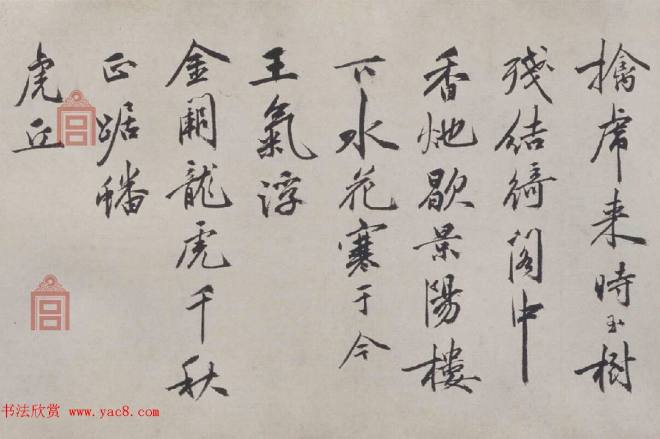 擒虎来時玉樹
殘結綺閣中
香灺歇景陽樓
下水花寒于今
王氣浮
金闕龍虎千秋
正踞蟠
虎丘
书法欣赏 www.yac8.com